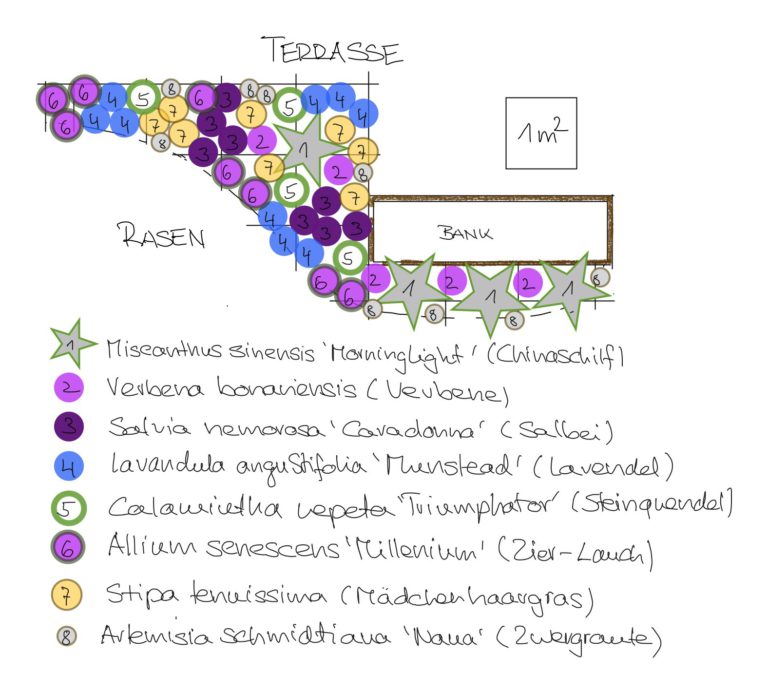 TERRASSE
6 6 4 5 8 6 3 8 8 5 4 4 4
6 4 4 7 7 7 8 3 3 3 2 7 1 7 7
6 7 2 8
6 5 3 7
4 3 3 3
4 4 5
6 6
1m²
RASEN
BANK
2 1 2 1 2 1 8
8 8 8
1 Miscanthus sinensis 'Morninglight' (Chinaschilf)
2 Verbena bonariensis (Verbene)
3 Salvia nemorosa 'Caradonna' (Salbei)
4 Lavandula angustifolia 'Munstead' (Lavendel)
5 Calamintha nepeta 'Triumphator' (Steinquendel)
6 Allium senescens 'Millenium' (Zier-Lauch)
7 Stipa tenuissima (Mädchenhaargras)
8 Artemisia schmidtiana 'Nana' (Zwergraute)